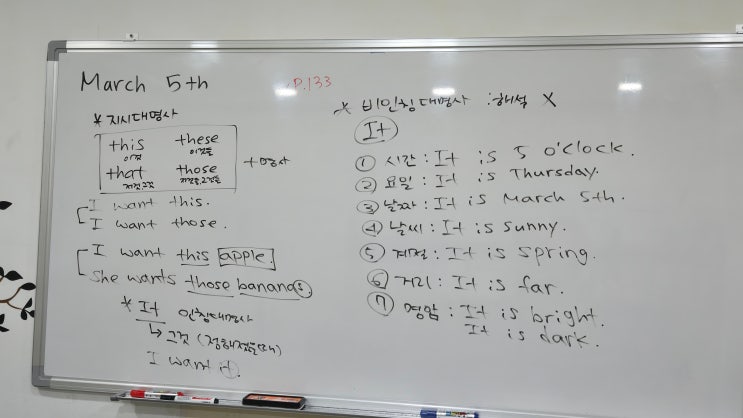 March 5th
P.133
* 지시대명사
this these
이것 이것들
that those
저것, 그것 저것들, 그것들
+ 명사
I want this.
I want those.
I want this apple.
She wants those bananas
* It 인칭대명사
↳ 그것 (정해졌을때)
I want it.
* 비인칭대명사 : 해석 X
It
① 시간 : It is 5 o'clock.
② 요일 : It is Thursday.
③ 날짜 : It is March 5th.
④ 날씨 : It is sunny.
⑤ 계절 : It is spring.
⑥ 거리 : It is far.
⑦ 명암 : It is bright.
It is dark.